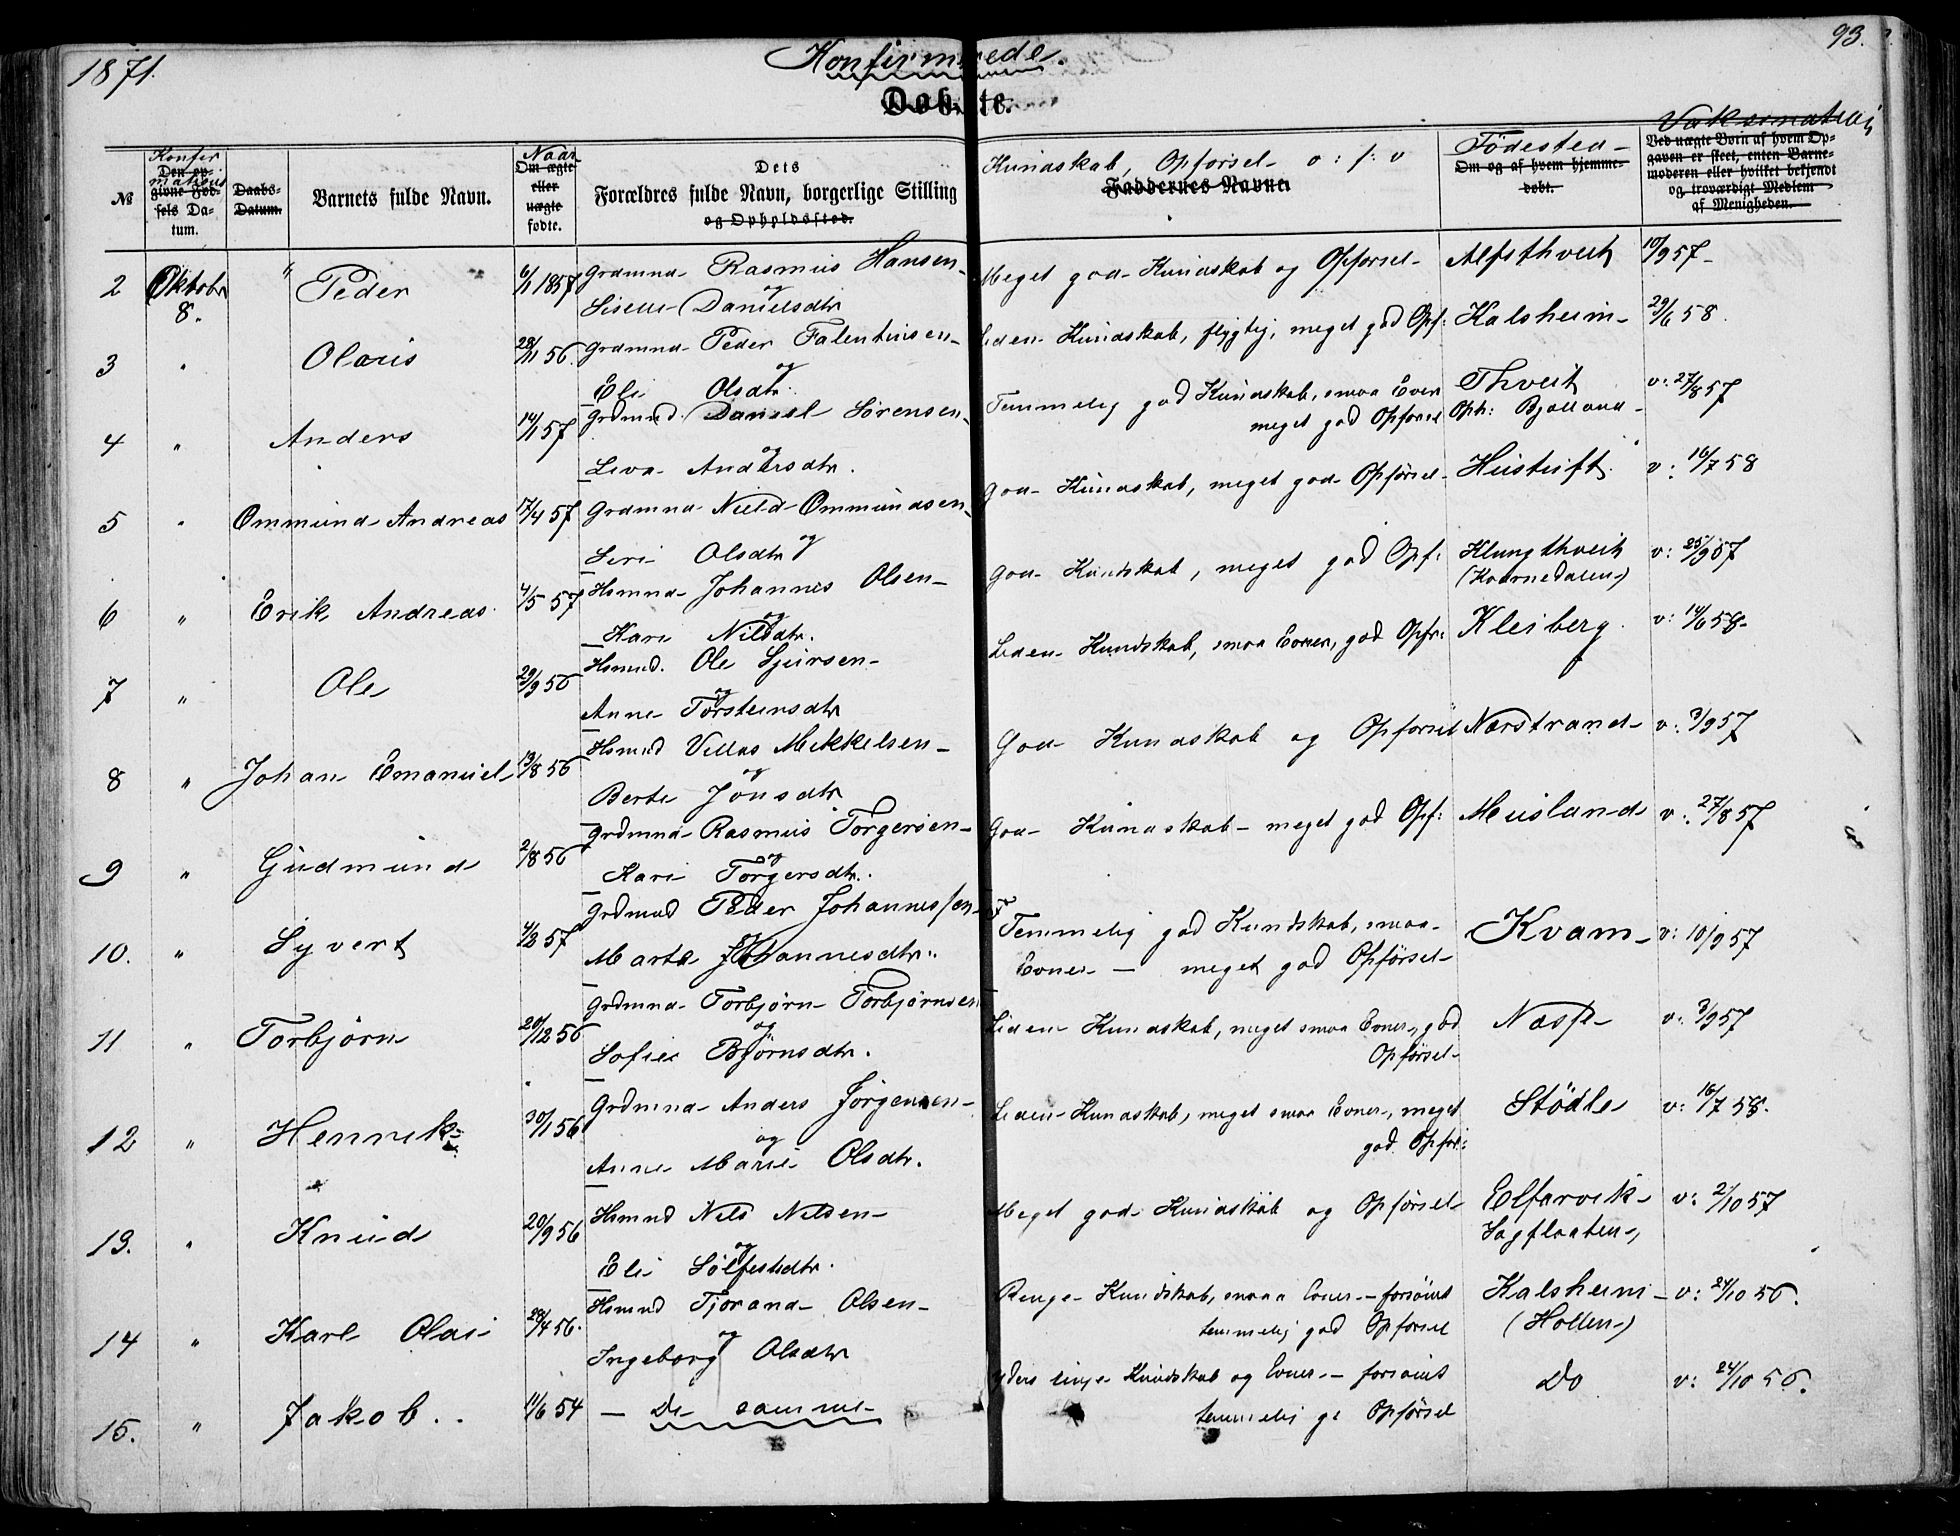 1871.
Konfirmerede.
93.
Døbte.
Vaksination
№
Konfir
mations
Den op-
givne Fød-
sels Da-
tum.
Daabs-
Datum.
Barnets fulde Navn.
Naar
Om ægte
eller
uægte
fødte.
Dets
Forældres fulde Navn, borgerlige Stilling
og Opholdssted.
Kundskab, Opførsel o: s: v
Faddernes Navne.
Fødested
Om og af hvem hjemme-
døbt.
Ved uægte Børn af hvem Op-
gaven er skeet, enten Barne-
moderen eller hvilket bekjendt
og troværdigt Medlem
af Menigheden.
2 Oktobr 8. " Peder 6/1 1857 Grdmnd Rasmus Hansen og Meget god Kundskab og Opførsel Alfsthveit 10/9 57
Siselle Danielsdtr
3 " Olaus 28/11 56. Grdmnd Peder Falentinsen og Liden Kundskab, flygtig, meget god Opf: Kalsheim 29/6 58.
Eli Olsdtr.
4 " Anders 14/1 57 Grdmnd. Daniel Sørensen og Temmelig god Kundskab, smaa Evner Thveit v: 27/8 57
Siva Andersdtr. meget god Opførsel Oph: Bjelland
5 " Ommund Andreas 17/4 57 Grdmnd Nield Ommundsen og God Kundskab, meget god Opførsel Heistuft. v: 16/7 58
Siri Olsdtr
6 " Erik Andreas 4/5 57 Hsmnd Johannes Olsen og God Kundskab, meget god Opf: Klungthveit v: 25/9 57
Kari Nilsdtr. (Kvernedalen)
7 " Ole 29/9 56 Hsmnd. Ole Sjursen og Liden Kundskab, smaa Evner, god Opfr: Kleiberg. v: 14/6 58
Anne Torsteinsdtr
8 " Johan Emanuel 13/8 56 Hsmnd Villas Mikkelsen og God Kundskab og Opførsel Nærstrand v: 3/9 57
Berte Jonsdtr
9 " Gudmund 2/8 56 Grdmnd Rasmus Torgersen og God Kundskab meget god Opf: Meisland v: 27/8 57
Kari Torgersdtr.
10. " Syvert 4/2 57 Grdmnd Peder Johannessen og Temmelig god Kundskab, smaa Kvam v: 10/9 57
Marta Johannesdtr. Evner — meget god Opførsel
11 " Torbjørn 20/12 56 Grdmnd Torbjørn Torbjørnsen og Liden Kundskab, meget smaa Evner, god Næsse v: 3/9 57
Sofie Bjørnsdtr. Opførsel
12 " Henrik 30/1 56 Grdmnd Anders Jørgensen og Liden Kundskab, meget smaa Evner, meget Stødle v: 16/7 58.
Anne Marie Olsdtr. god Opfør:
13. " Knud 20/9 56 Hsmnd Nils Nilsen og Meget god Kundskab og Opførsel Elfarvik v: 2/10 57
Eli Sølfestsdtr. Sagflaaten
14 " Karl Olai 28/4 56. Hsmnd Tjerand Olsen og Ringe Kundskab, smaa Evner — forsømt Kalsheim v: 24/10 56.
Ingeborg Olsdtr temmelig god Opførsel (Hollen)
15. " Jakob. 11/6 54 — De samme Yders ringe Kundskab og Evner — forsømt Do v: 24/10 56.
temmelig g: Opførsel